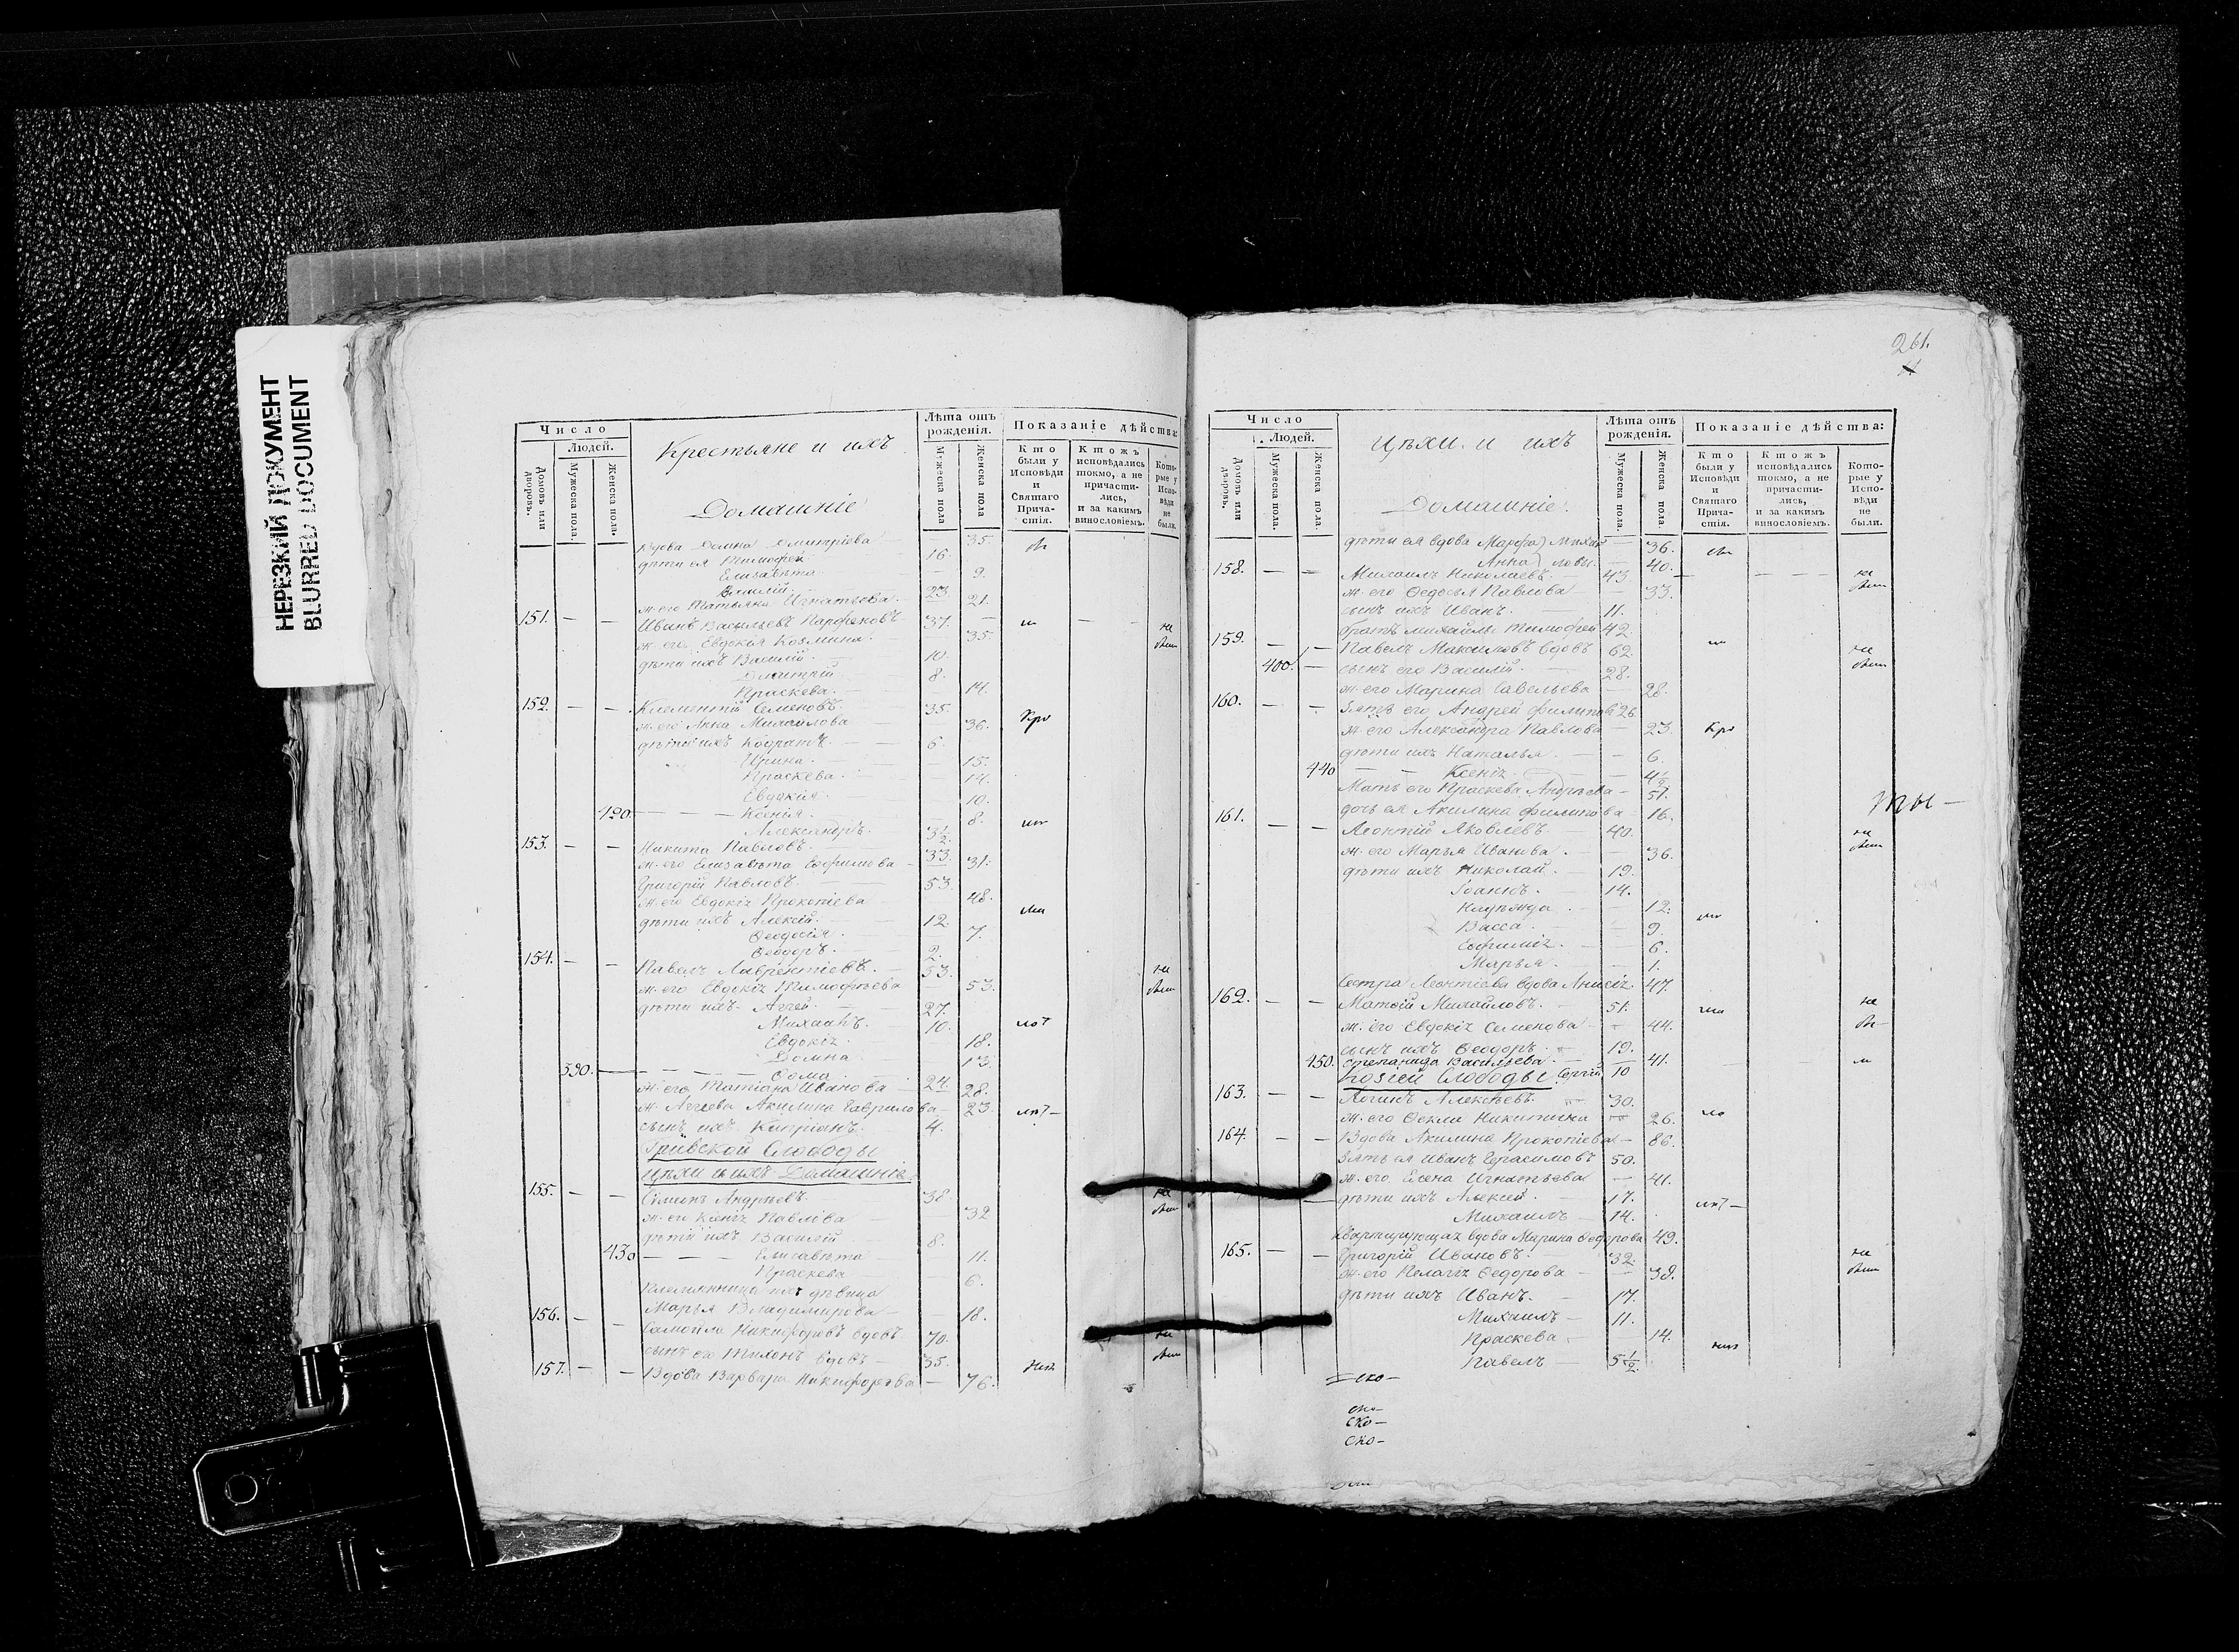 НЕРЕЗКИЙ ДОКУМЕНТ
BLURRED DOCUMENT
Число
Людей.
Домовъ или дворовъ.
Мужеска пола.
Женска пола.
Крестьяне и ихъ
Домашніе
Лѣта отъ рожденія.
Мужеска пола
Женска пола
Показаніе дѣйства:
Кто были у Исповѣди и Святаго Причастія.
Ктожъ исповѣдались токмо, а не причастились, и за какимъ винословіемъ.
Которые у Исповѣди не были.
Вдова Домна Дмитріева — 35.
дѣти ея Тимофей 16
Елизавета — 9.
Василій 23
ж. его Татьяна Игнатьева. 21.
151. — — Иванъ Васильевъ Парфеновъ 37. —
ж. его Евдокія Козмина. 35.
дѣти ихъ Василій. 10.
Дмитрій 8.
Праскева. 14.
152. — — Климентій Семеновъ. 35.
ж. его Анна Михайлова 36.
дѣти ихъ Кодратъ. 6.
Ирина. 15.
Праскева. 14.
Евдокія. 10.
420. — — — Ксенія. 8.
Александръ. 3 1/2
153. — — Никита Павловъ. 33.
ж. его Елизавета Ефимова 31.
Григорій Павловъ. 53.
ж. его Евдокія Прокопіева 48.
дѣти ихъ Алексій. 12.
Феодосія. 7.
Феодоръ. 2.
154. — — Павелъ Лаврентіевъ. 53.
ж. его Евдокія Тимофеева 53.
дѣти ихъ Аггей. 27.
Михаилъ. 10.
Евдокія. 18.
Домна 13.
390. — — — Фома 24.
ж. его Татіана Иванова 28.
ж. Аггеева Акилина Гаврилова — 23.
сынъ ихъ Кипріанъ. 4.
Гривской Слободы
Цѣхи и ихъ Домашніе
155. — — Симеонъ Андреевъ 38.
ж. его Ксенія Павлова 32
дѣти ихъ Василій 8.
430 — — — Елисавета 11.
Праскева 6.
Племянница ихъ дѣвица
Марья Владимирова 18.
156. — — Самойла Никифоровъ вдовъ 70.
сынъ его Тихонъ вдовъ — 35.
157. — — Вдова Варвара Никифорова — 76.
261.
Число
Людей.
Домовъ или дворовъ.
Мужеска пола.
Женска пола.
Цѣхи и ихъ
Домашніе.
Лѣта отъ рожденія.
Мужеска пола.
Женска пола.
Показаніе дѣйства:
Кто были у Исповѣди и Святаго Причастія.
Ктожъ исповѣдались токмо, а не причастились, и за какимъ винословіемъ.
Которые у Исповѣди не были.
дѣти ея вдова Марфа } Михай — 36.
Анна } ловы. — 40.
158. — — Михаилъ Николаевъ. 43
ж. его Федосья Павлова — 33.
сынъ ихъ Иванъ. 11.
братъ Михайлы Тимофей 42
159. — — Павелъ Максимовъ вдовъ 62.
400. — сынъ его Василій. 28.
ж. его Марина Савельева 28.
160. — — Зять его Андрей Филипов 26.
ж. его Александра Павлова — 23.
дѣти ихъ Наталья — 6.
440 — — Ксенія. — 4 1/2
Мать его Праскева Андреева — 51.
дочь ея Акилина Филипова — 16.
161. — — Леонтій Яковлевъ. 40.
ж. его Марья Иванова. — 36.
дѣти ихъ Николай. 19.
Іоаннъ. 14.
Надежда. 12.
Васса. 9.
Ефимія. 6.
Марья. 1.
Сестра Леонтіева вдова Анисія. 47.
162. — — Матвій Михайловъ. 51.
ж. его Евдокія Семенова 44.
сынъ ихъ Феодоръ 19.
450. Степанида Васильева. 41.
Козьей Слободы Сергій 10
163. — — Логинъ Алексѣевъ. 30.
ж. его Фекла Никитина 26.
164. — — Вдова Акилина Прокопіева — 86.
Зять ея Иванъ Герасимовъ 50.
ж. его Елена Игнатьева — 41.
дѣти ихъ Алексей 17.
Михаилъ 14.
Квартирующая вдова Марина Федорова 49.
165. — — Григорій Ивановъ. 32.
ж. его Пелагія Федорова — 38.
дѣти ихъ Иванъ. 17.
Михаилъ 11.
Праскева 14.
Павелъ 5 1/2
ско—
ско—
ско—
ты —